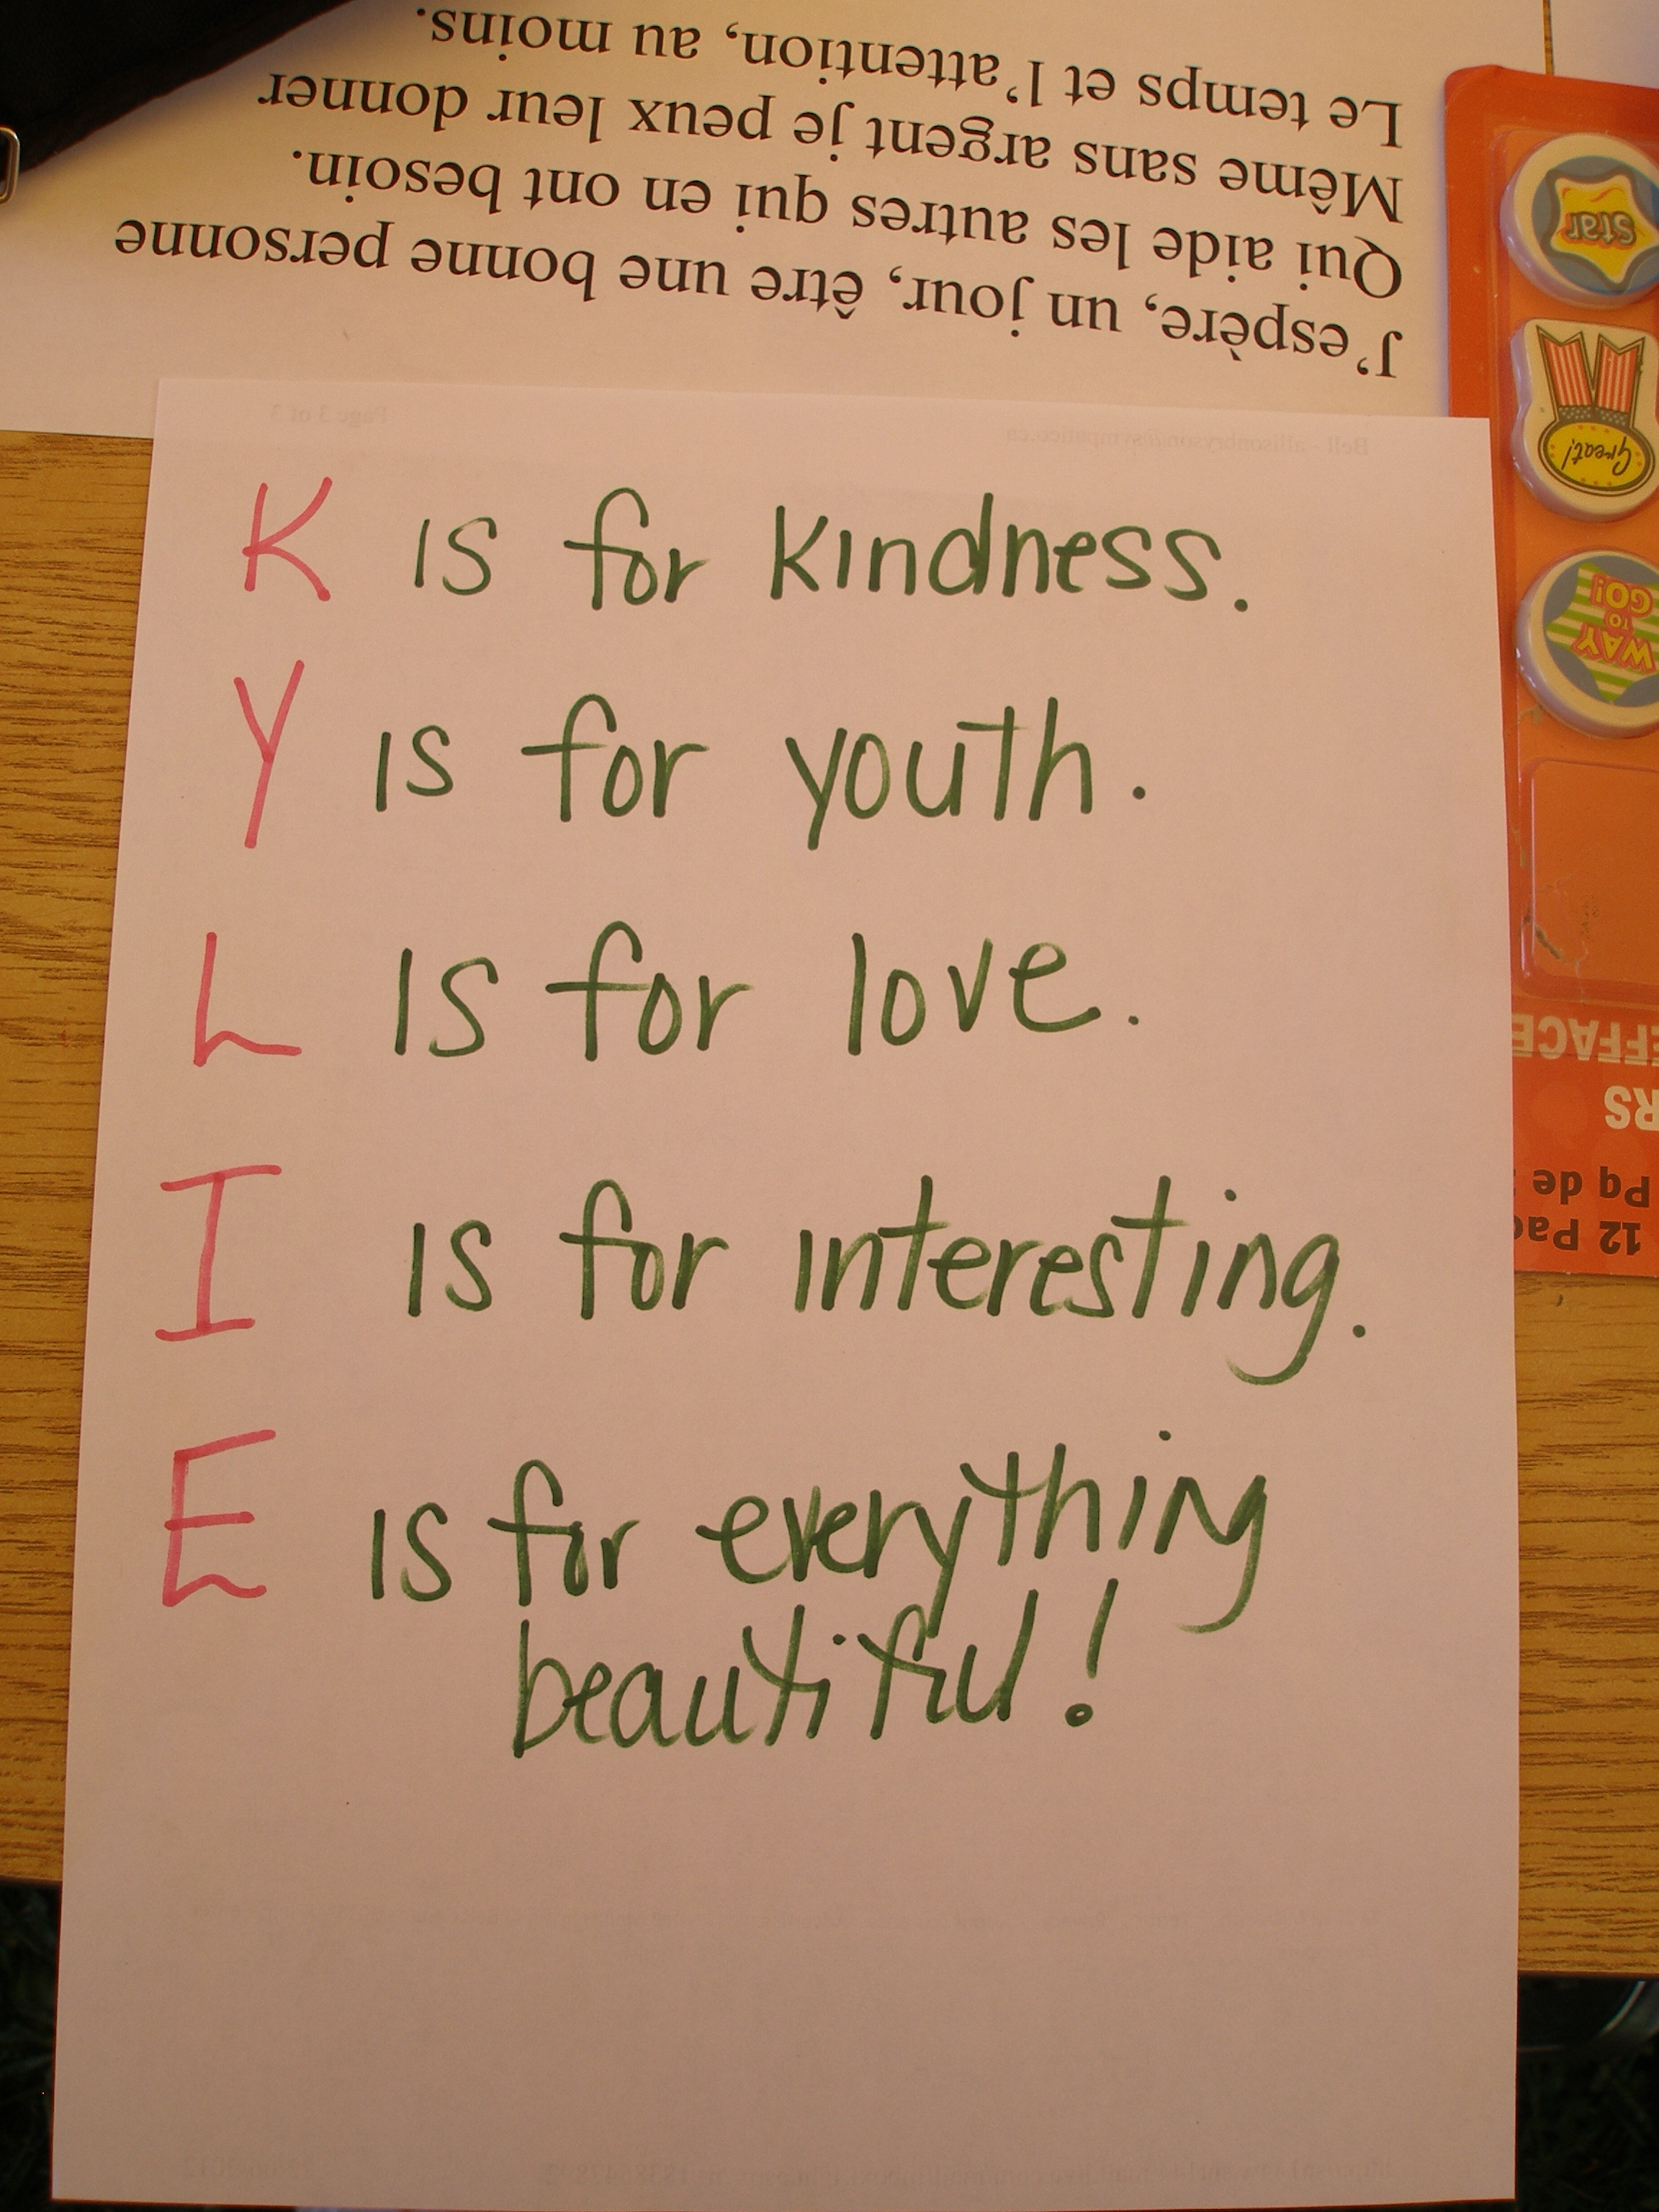 J'espère, un jour, être une bonne personne
Qui aide les autres qui en ont besoin.
Même sans argent je peux leur donner
Le temps et l'attention, au moins.
K is for kindness.
Y is for youth.
L is for love.
I is for interesting.
E is for everything
beautiful!
Page 3 of 3
Bell - allisonbryson@sympatico.ca
star
Great!
WAY
TO
GO!
EFFACE
RS
Pq de
12 Pac